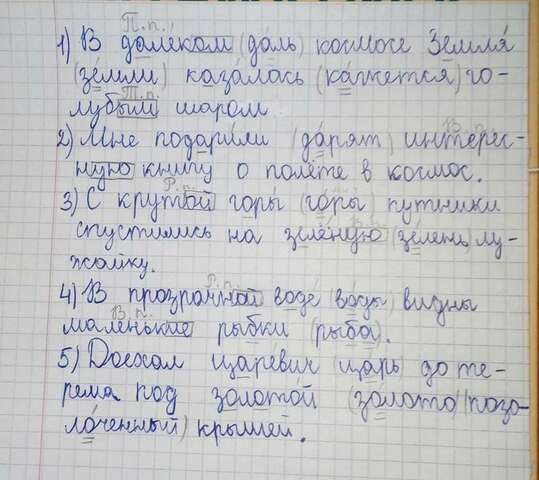 П.п.
1) В далеком (даль) космосе Земля
(земли) казалась (кажется) го-
Т.п.
лубым шаром
2) Мне подарили (дарят) интерес-
ную книгу о полёте в космос.
Р.п.
3) С крутой горы (горы) путники
спустились на зелёную (зелень) лу-
жайку.
Р.п.
4) В прозрачной воде (воды) видны
В.п.
маленькие рыбки (рыба).
5) Доехал царевич (царь) до те-
рема под золотой (золото) (позо-
лоченный) крышей.